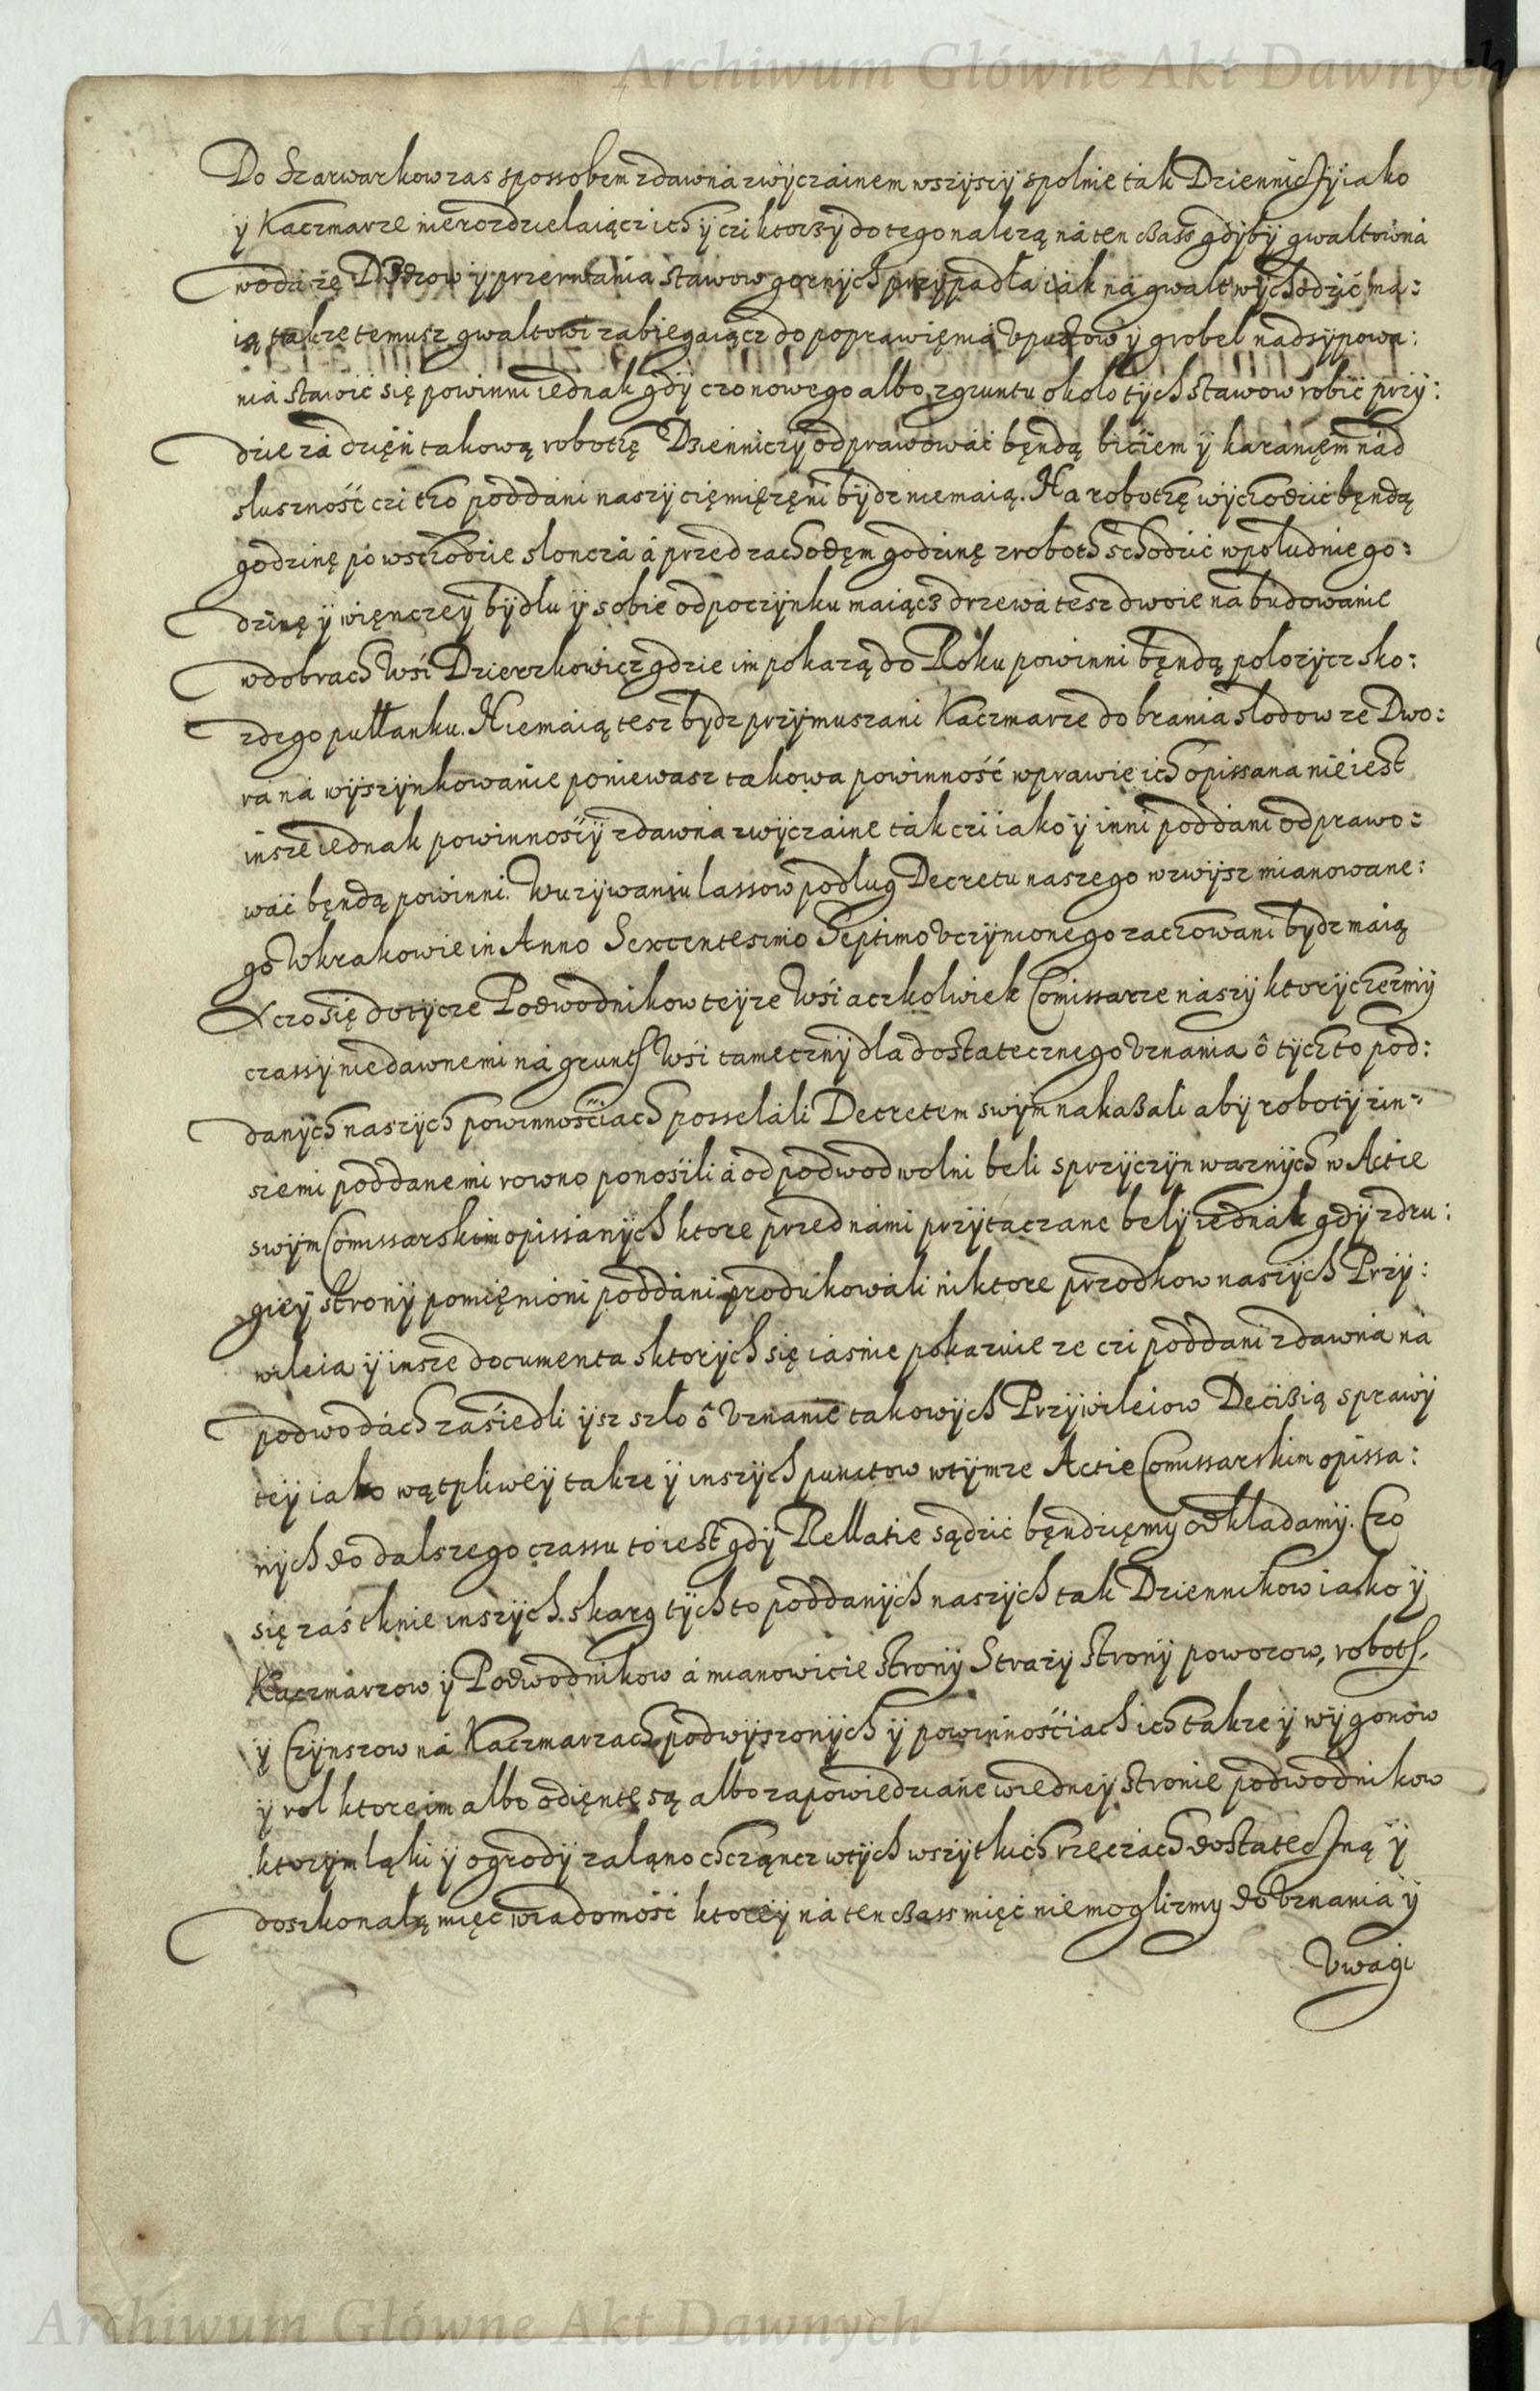 Archiwum Główne Akt Dawnych
Do Szarwarkow zas spossobem zdawna zwÿczainem wszÿscÿ spolnie tak Dziennicÿ iako
ÿ Kaczmarze nierozdzielaiącz ich ÿ czi ktorzÿ do tego nalezą na ten czass gdÿbÿ gwaltowna
woda ze Dżdzow ÿ przerwania stawow gornÿch przÿpadła iak na gwalt wÿchodzić ma:
ią takze temusz gwaltowi zabiegaiącz do poprawięnia Vpustow ÿ grobel nadsÿpowa:
nia stawić się powinni iednak gdÿ czo nowego albo z gruntu okolo tÿch stawow robić przÿ:
dzie za dzięń takową robothę Dzienniczÿ odprawowac będą biciem ÿ karanięm nad
sluszność czi tho poddani naszÿ ciemięzęni bÿdz niemaią. Na robothę wÿchodzić bęndą
godzinę po wschodzie sloncza a przed zachodęm godzinę z roboth schodzić w poludnie go:
dzinę ÿ więnczeÿ bÿdlu ÿ sobie odpoczÿnku maiącz drzewa tesz dwoie na budowanie
w dobrach Wsi Dzierzkowicz gdzie im pokazą do Roku powinni będą polozÿcz sko:
zdego pułłanku. Niemaią tesz bydz przÿmuszani Kaczmarze do brania slodow ze Dwo:
ra na wÿszÿnkowanie poniewasz takowa powinność w prawie ich opissana nie iest
insze iednak powinnosciÿ zdawna zwÿczaine tak czi iako ÿ inni poddani odprawo:
wać będą powinni. W uzÿwaniu lassow podlug Decretu naszego wzwÿsz mianowane:
go W Krakowie in Anno Sexcentesimo Septimo Vczÿnionego zachowani bydz maią
A czo się dotÿcze Podwodnikow teÿze Wsi aczkolwiek Comissarze naszÿ ktorÿchezmÿ
czassÿ niedawnemi na grunth Wsi tamecznÿ dla dostatecznego Vznania o tÿchto pod:
danÿch naszÿch powinnościach posselali Decretem swÿm nakazali abÿ robotÿ z in:
szemi poddanemi rowno ponosili a od podwod wolni beli sprzÿczÿn waznÿch w Actie
swÿm Comissarskim opissanÿch ktore przed nami przÿtaczane belÿ iednak gdÿ z dru:
gieÿ stronÿ pomięnioni poddani produkowali niktore przodkow naszÿch Przÿ:
wileia ÿ insze documenta s ktorÿch się iasnie pokazuie ze czi poddani zdawna na
podwodach zasiedli ÿsz szlo o Vznanie takowÿch Przÿwileiow Decisią sprawÿ
teÿ iako wątpliweÿ takze ÿ inszÿch punctow w tÿmze Actie Comissarskim opissa:
nÿch do dalszego czassu to iest gdÿ Rellatie sądzić będzięmy odkladamÿ. Czo
się zaś tknie inszÿch skarg tÿchto poddanÿch naszÿch tak Dziennikow iako ÿ
Kaczmarzow ÿ Podwodnikow a mianowicie stronÿ Strazÿ stronÿ powozow, roboth,
ÿ Czÿnszow na Kaczmarzach podwÿszonÿch ÿ powinnościach ich takze ÿ wÿgonow
ÿ rol ktore im albo odięnte są albo zapowiedziane w iedneÿ stronie podwodnikow
ktorÿm ląki ÿ ogrodÿ zaląno chcząncz w tÿch wszÿtkich rzeczach dostateczną ÿ
doszkonałą mięc wiadomość ktoreÿ na ten czass mięć niemoglizmy do Vznania ÿ
Vwagi
Archiwum Główne Akt Dawnych